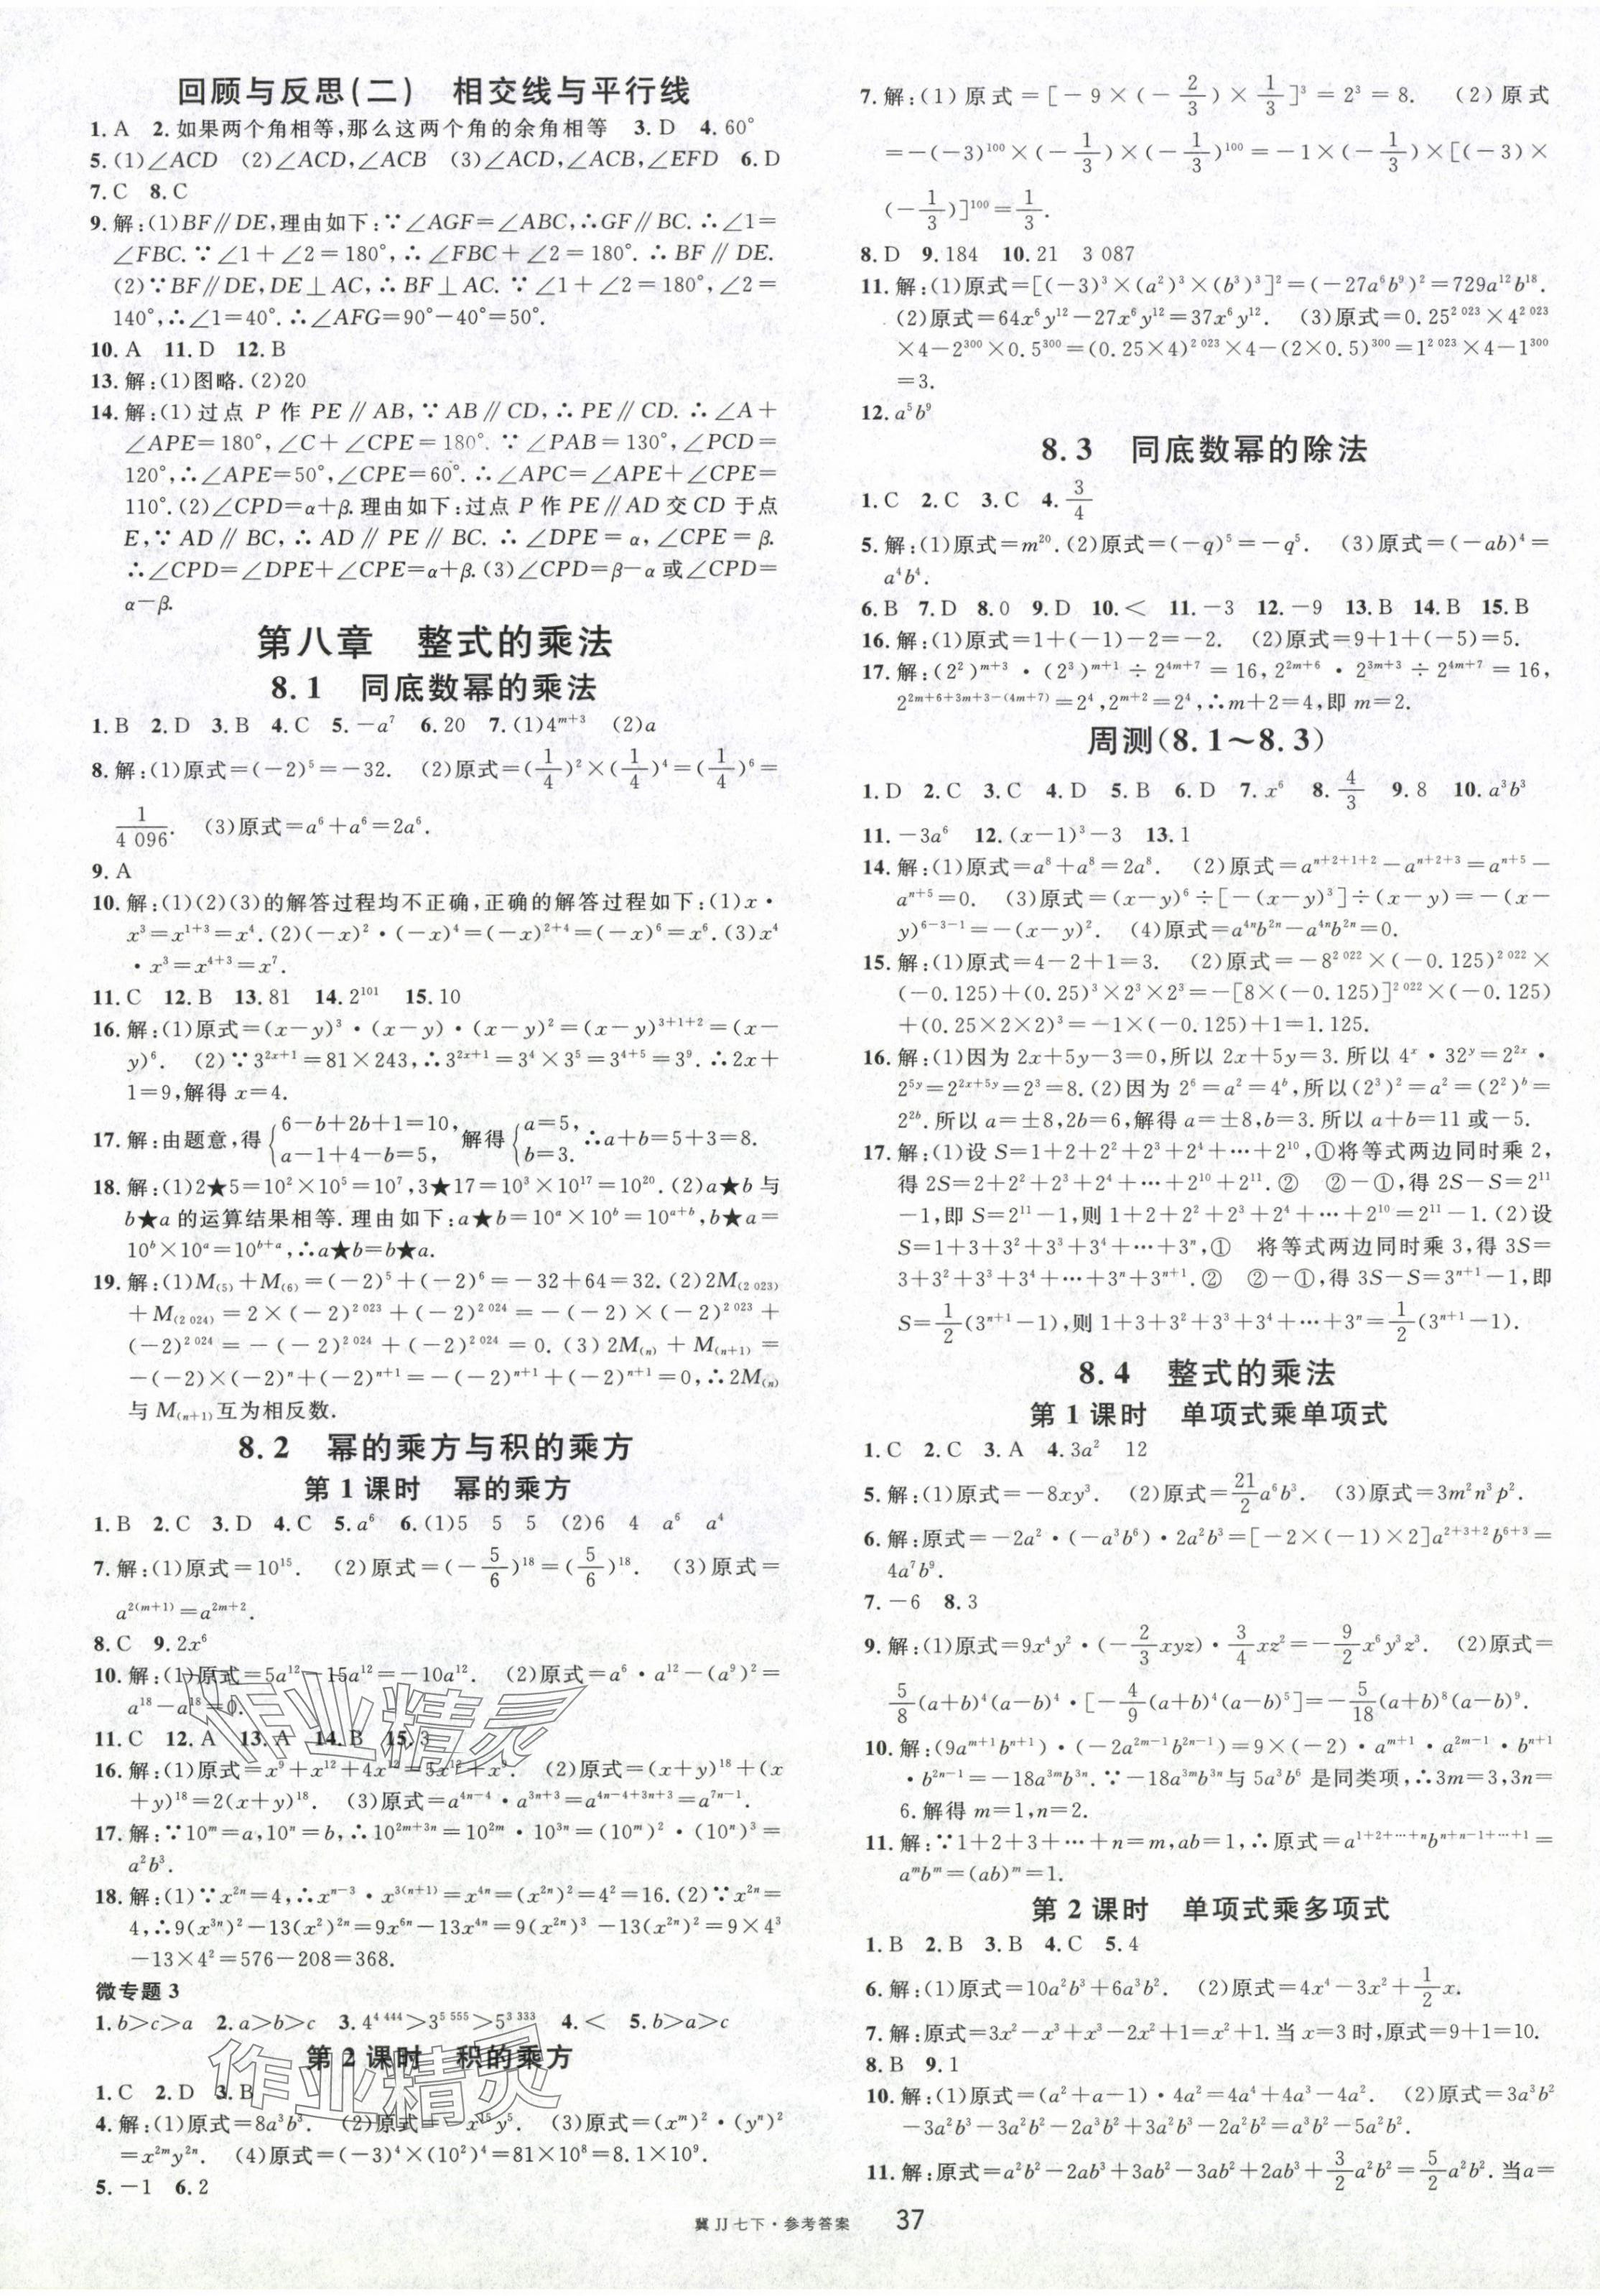 回顾与反思(二)　相交线与平行线
1.A　2.如果两个角相等,那么这两个角的余角相等　3.D　4.60°
5.(1)∠ACD　(2)∠ACD,∠ACB　(3)∠ACD,∠ACB,∠EFD　6.D
7.C　8.C
9.解:(1)BF∥DE,理由如下:∵∠AGF=∠ABC,∴GF∥BC.∴∠1=
∠FBC.∵∠1+∠2=180°,∴∠FBC+∠2=180°.∴BF∥DE.
(2)∵BF∥DE,DE⊥AC,∴BF⊥AC.∵∠1+∠2=180°,∠2=
140°,∴∠1=40°.∴∠AFG=90°-40°=50°.
10.A　11.D　12.B
13.解:(1)图略.(2)20
14.解:(1)过点 P 作 PE∥AB,∵AB∥CD,∴PE∥CD.∴∠A+
∠APE=180°,∠C+∠CPE=180°.∵∠PAB=130°,∠PCD=
120°,∴∠APE=50°,∠CPE=60°.∴∠APC=∠APE+∠CPE=
110°.(2)∠CPD=α+β.理由如下:过点 P 作 PE∥AD 交 CD 于点
E,∵AD∥BC,∴AD∥PE∥BC.∴∠DPE=α,∠CPE=β.
∴∠CPD=∠DPE+∠CPE=α+β.(3)∠CPD=β-α 或∠CPD=
α-β.
第八章　整式的乘法
8.1　同底数幂的乘法
1.B　2.D　3.B　4.C　5.-a⁷　6.20　7.(1)4^{m+3}　(2)a
8.解:(1)原式=(-2)⁵=-32.　(2)原式=(1/4)²×(1/4)⁴=(1/4)⁶=
1/4 096.　(3)原式=a⁶+a⁶=2a⁶.
9.A
10.解:(1)(2)(3)的解答过程均不正确,正确的解答过程如下:(1)x·
x³=x^{1+3}=x⁴.(2)(-x)²·(-x)⁴=(-x)^{2+4}=(-x)⁶=x⁶.(3)x⁴
·x³=x^{4+3}=x⁷.
11.C　12.B　13.81　14.2^{101}　15.10
16.解:(1)原式=(x-y)³·(x-y)·(x-y)²=(x-y)^{3+1+2}=(x-
y)⁶.　(2)∵3^{2x+1}=81×243,∴3^{2x+1}=3⁴×3⁵=3^{4+5}=3⁹.∴2x+
1=9,解得 x=4.
17.解:由题意,得{6-b+2b+1=10, a-1+4-b=5, 解得{a=5, b=3. ∴a+b=5+3=8.
18.解:(1)2★5=10²×10⁵=10⁷,3★17=10³×10^{17}=10^{20}.(2)a★b 与
b★a 的运算结果相等.理由如下:a★b=10^a×10^b=10^{a+b},b★a=
10^b×10^a=10^{b+a},∴a★b=b★a.
19.解:(1)M₍₅₎+M₍₆₎=(-2)⁵+(-2)⁶=-32+64=32.(2)2M_{(2 023)}
+M_{(2 024)}=2×(-2)^{2 023}+(-2)^{2 024}=-(-2)×(-2)^{2 023}+
(-2)^{2 024}=-(-2)^{2 024}+(-2)^{2 024}=0.(3)2M_{(n)}+M_{(n+1)}=
-(-2)×(-2)^n+(-2)^{n+1}=-(-2)^{n+1}+(-2)^{n+1}=0,∴2M_{(n)}
与 M_{(n+1)}互为相反数.
8.2　幂的乘方与积的乘方
第 1 课时　幂的乘方
1.B　2.C　3.D　4.C　5.a⁶　6.(1)5　5　5　(2)6　4　a⁶　a⁴
7.解:(1)原式=10^{15}.　(2)原式=(-5/6)^{18}=(5/6)^{18}.　(3)原式=
a^{2(m+1)}=a^{2m+2}.
8.C　9.2x⁶
10.解:(1)原式=5a^{12}-15a^{12}=-10a^{12}.　(2)原式=a⁶·a^{12}-(a⁹)²=
a^{18}-a^{18}=0.
11.C　12.A　13.A　14.B　15.3
16.解:(1)原式=x⁹+x^{12}+4x^{12}=5x^{12}+x⁹.　(2)原式=(x+y)^{18}+(x
+y)^{18}=2(x+y)^{18}.　(3)原式=a^{4n-4}·a^{3n+3}=a^{4n-4+3n+3}=a^{7n-1}.
17.解:∵10^m=a,10^n=b,∴10^{2m+3n}=10^{2m}·10^{3n}=(10^m)²·(10^n)³=
a²b³.
18.解:(1)∵x^{2n}=4,∴x^{n-3}·x^{3(n+1)}=x^{4n}=(x^{2n})²=4²=16.(2)∵x^{2n}=
4,∴9(x^{3n})²-13(x²)^{2n}=9x^{6n}-13x^{4n}=9(x^{2n})³-13(x^{2n})²=9×4³
-13×4²=576-208=368.
微专题 3
1.b>c>a　2.a>b>c　3.4^{4 444}>3^{5 555}>5^{3 333}　4.<　5.b>a>c
第 2 课时　积的乘方
1.C　2.D　3.B
4.解:(1)原式=8a³b³.　(2)原式=-x^{15}y⁵.　(3)原式=(x^m)²·(y^n)²
=x^{2m}y^{2n}.　(4)原式=(-3)⁴×(10²)⁴=81×10⁸=8.1×10⁹.
5.-1　6.2
7.解:(1)原式=[-9×(-2/3)×1/3]³=2³=8.　(2)原式
=-(-3)^{100}×(-1/3)×(-1/3)^{100}=-1×(-1/3)×[(-3)×
(-1/3)]^{100}=1/3.
8.D　9.184　10.21　3 087
11.解:(1)原式=[(-3)³×(a²)³×(b³)³]²=(-27a⁶b⁹)²=729a^{12}b^{18}.
(2)原式=64x⁶y^{12}-27x⁶y^{12}=37x⁶y^{12}.　(3)原式=0.25^{2 023}×4^{2 023}
×4-2^{300}×0.5^{300}=(0.25×4)^{2 023}×4-(2×0.5)^{300}=1^{2 023}×4-1^{300}
=3.
12.a⁵b⁹
8.3　同底数幂的除法
1.C　2.C　3.C　4.3/4
5.解:(1)原式=m^{20}.(2)原式=(-q)⁵=-q⁵.　(3)原式=(-ab)⁴=
a⁴b⁴.
6.B　7.D　8.0　9.D　10.<　11.-3　12.-9　13.B　14.B　15.B
16.解:(1)原式=1+(-1)-2=-2.　(2)原式=9+1+(-5)=5.
17.解:(2²)^{m+3}·(2³)^{m+1}÷2^{4m+7}=16,2^{2m+6}·2^{3m+3}÷2^{4m+7}=16,
2^{2m+6+3m+3-(4m+7)}=2⁴,2^{m+2}=2⁴,∴m+2=4,即 m=2.
周测(8.1～8.3)
1.D　2.C　3.C　4.D　5.B　6.D　7.x⁶　8.4/3　9.8　10.a³b³
11.-3a⁶　12.(x-1)³-3　13.1
14.解:(1)原式=a⁸+a⁸=2a⁸.　(2)原式=a^{n+2+1+2}-a^{n+2+3}=a^{n+5}-
a^{n+5}=0.　(3)原式=(x-y)⁶÷[-(x-y)³]÷(x-y)=-(x-
y)^{6-3-1}=-(x-y)².　(4)原式=a^{4n}b^{2n}-a^{4n}b^{2n}=0.
15.解:(1)原式=4-2+1=3.　(2)原式=-8^{2 022}×(-0.125)^{2 022}×
(-0.125)+(0.25)³×2³×2³=-[8×(-0.125)]^{2 022}×(-0.125)
+(0.25×2×2)³=-1×(-0.125)+1=1.125.
16.解:(1)因为 2x+5y-3=0,所以 2x+5y=3.所以 4^x·32^y=2^{2x}·
2^{5y}=2^{2x+5y}=2³=8.(2)因为 2⁶=a²=4^b,所以(2³)²=a²=(2²)^b=
2^{2b}.所以 a=±8,2b=6,解得 a=±8,b=3.所以 a+b=11 或-5.
17.解:(1)设 S=1+2+2²+2³+2⁴+…+2^{10},①将等式两边同时乘 2,
得 2S=2+2²+2³+2⁴+…+2^{10}+2^{11}.②　②-①,得 2S-S=2^{11}
-1,即 S=2^{11}-1,则 1+2+2²+2³+2⁴+…+2^{10}=2^{11}-1.(2)设
S=1+3+3²+3³+3⁴+…+3^n,①　将等式两边同时乘 3,得 3S=
3+3²+3³+3⁴+…+3^n+3^{n+1}.②　②-①,得 3S-S=3^{n+1}-1,即
S=1/2(3^{n+1}-1),则 1+3+3²+3³+3⁴+…+3^n=1/2(3^{n+1}-1).
8.4　整式的乘法
第 1 课时　单项式乘单项式
1.C　2.C　3.A　4.3a²　12
5.解:(1)原式=-8xy³.　(2)原式=21/2a⁶b³.　(3)原式=3m²n³p².
6.解:原式=-2a²·(-a³b⁶)·2a²b³=[-2×(-1)×2]a^{2+3+2}b^{6+3}=
4a⁷b⁹.
7.-6　8.3
9.解:(1)原式=9x⁴y²·(-2/3xyz)·3/4xz²=-9/2x⁶y³z³.　(2)原式=
5/8(a+b)⁴(a-b)⁴·[-4/9(a+b)⁴(a-b)⁵]=-5/18(a+b)⁸(a-b)⁹.
10.解:(9a^{m+1}b^{n+1})·(-2a^{2m-1}b^{2n-1})=9×(-2)·a^{m+1}·a^{2m-1}·b^{n+1}
·b^{2n-1}=-18a^{3m}b^{3n}.∵-18a^{3m}b^{3n}与 5a³b⁶ 是同类项,∴3m=3,3n=
6.解得 m=1,n=2.
11.解:∵1+2+3+…+n=m,ab=1,∴原式=a^{1+2+…+n}b^{n+n-1+…+1}=
a^mb^m=(ab)^m=1.
第 2 课时　单项式乘多项式
1.B　2.B　3.B　4.C　5.4
6.解:(1)原式=10a²b³+6a³b².　(2)原式=4x⁴-3x²+1/2x.
7.解:原式=3x²-x³+x³-2x²+1=x²+1.当 x=3 时,原式=9+1=10.
8.B　9.1
10.解:(1)原式=(a²+a-1)·4a²=4a⁴+4a³-4a².　(2)原式=3a³b²
-3a²b³-3a²b²-2a³b²+3a²b³-2a²b²=a³b²-5a²b².
11.解:原式=a²b²-2ab³+3ab²-3ab²+2ab³+3/2a²b²=5/2a²b².当 a=
冀 JJ 七下·参考答案　37
作业精灵
作业精灵